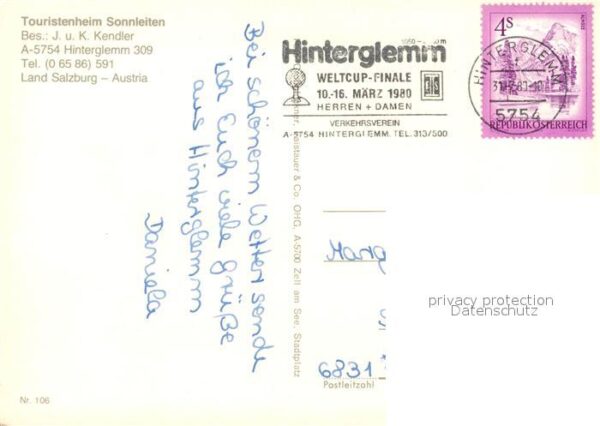 Touristenheim Sonnleiten
Bes.: J. u. K. Kendler
A-5754 Hinterglemm 309
Tel. (0 65 86) 591
Land Salzburg – Austria
Hinterglemm
WELTCUP-FINALE
10.-16. MÄRZ 1980
HERREN + DAMEN
VERKEHRSVEREIN
A-5754 HINTERGLEMM, TEL. 313/500
4S
REPUBLIK ÖSTERREICH
HINTERGLEMM
5754
Bei schönem Wetter sende
ich Euch viele Grüße
aus Hinterglemm
Daniela
& Co. OHG, A-5700 Zell am See, Stadtplatz
Marg
6831
Postleitzahl
privacy protection
Datenschutz
Nr. 106